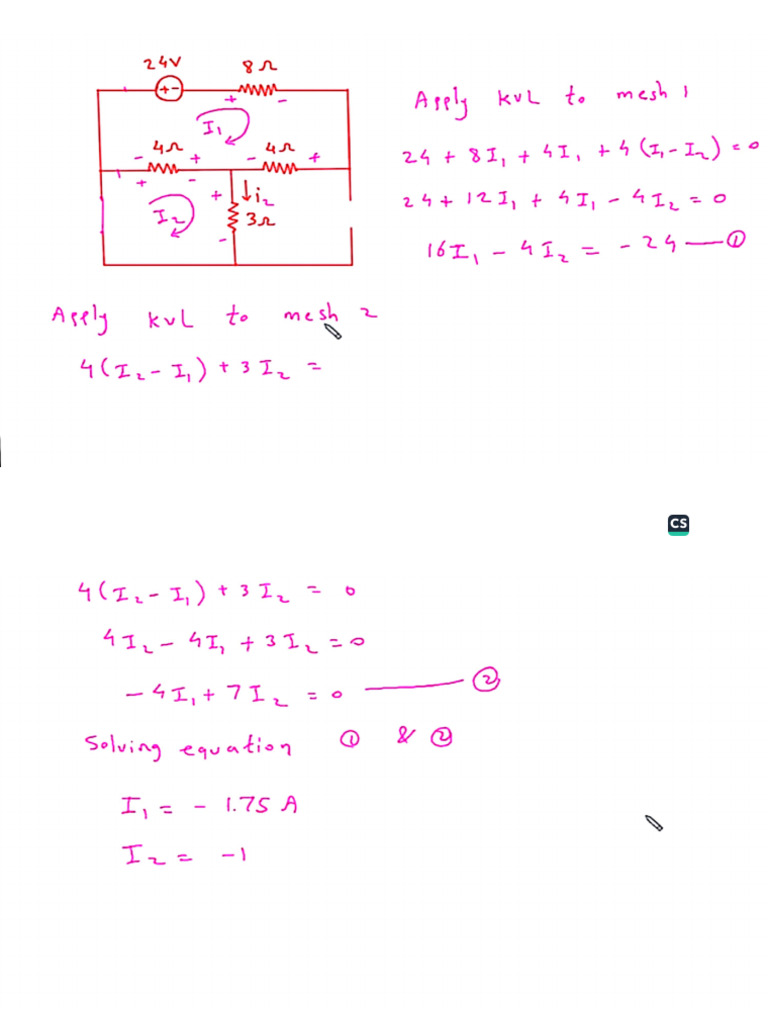 24V 8Ω
+ -
+ -
I₁
4Ω 4Ω
- + - +
+ - + ↓i₂
I₂ 3Ω
-
Apply KVL to mesh 1
24 + 8I₁ + 4I₁ + 4(I₁-I₂) = 0
24 + 12I₁ + 4I₁ - 4I₂ = 0
16I₁ - 4I₂ = -24 — ①
Apply KVL to mesh 2
4(I₂-I₁) + 3I₂ =
CS
4(I₂-I₁) + 3I₂ = 0
4I₂ - 4I₁ + 3I₂ = 0
-4I₁ + 7I₂ = 0 — ②
Solving equation ① & ②
I₁ = - 1.75 A
I₂ = -1